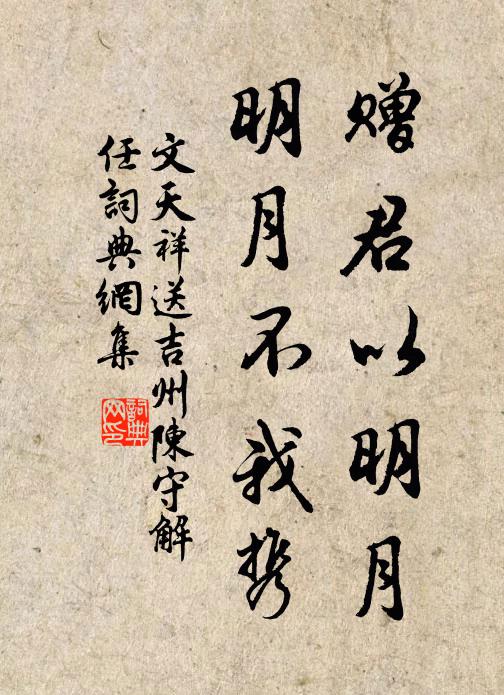 赠君以明月
明月不我携
文天祥送吉州陳守解
任詞典網集
詞典
网印